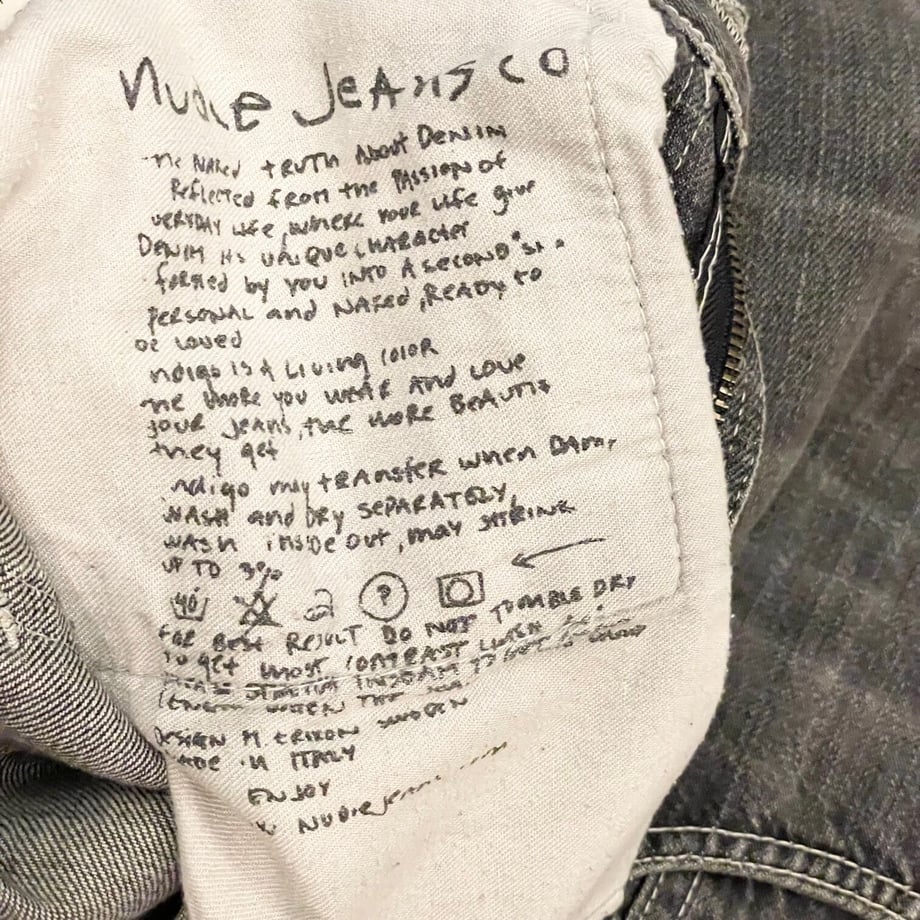 Nudie Jeans co
The NAKED tRUTH About Denim
Reflected from the PASSION of
everyday life, where your life give
Denim its unique character
formed by you into a second
personal and NAKED, READY to
be loved
ndigo is A Living color
The more you wear And love
your jeans, the more Beauti
they get
ndigo may tRANSFER when Damp
WASH and DRY SEPARATELY,
WASH inside out, may SHRINK
UP TO 3%
40
?
FOR BEST RESULT DO NOT TUMBLE DRY
TO get most CONTRAST
LENGTH WHEN THE
DESIGN M ERIXON SWEDEN
MADE IN ITALY
ENJOY
Nudiejeans